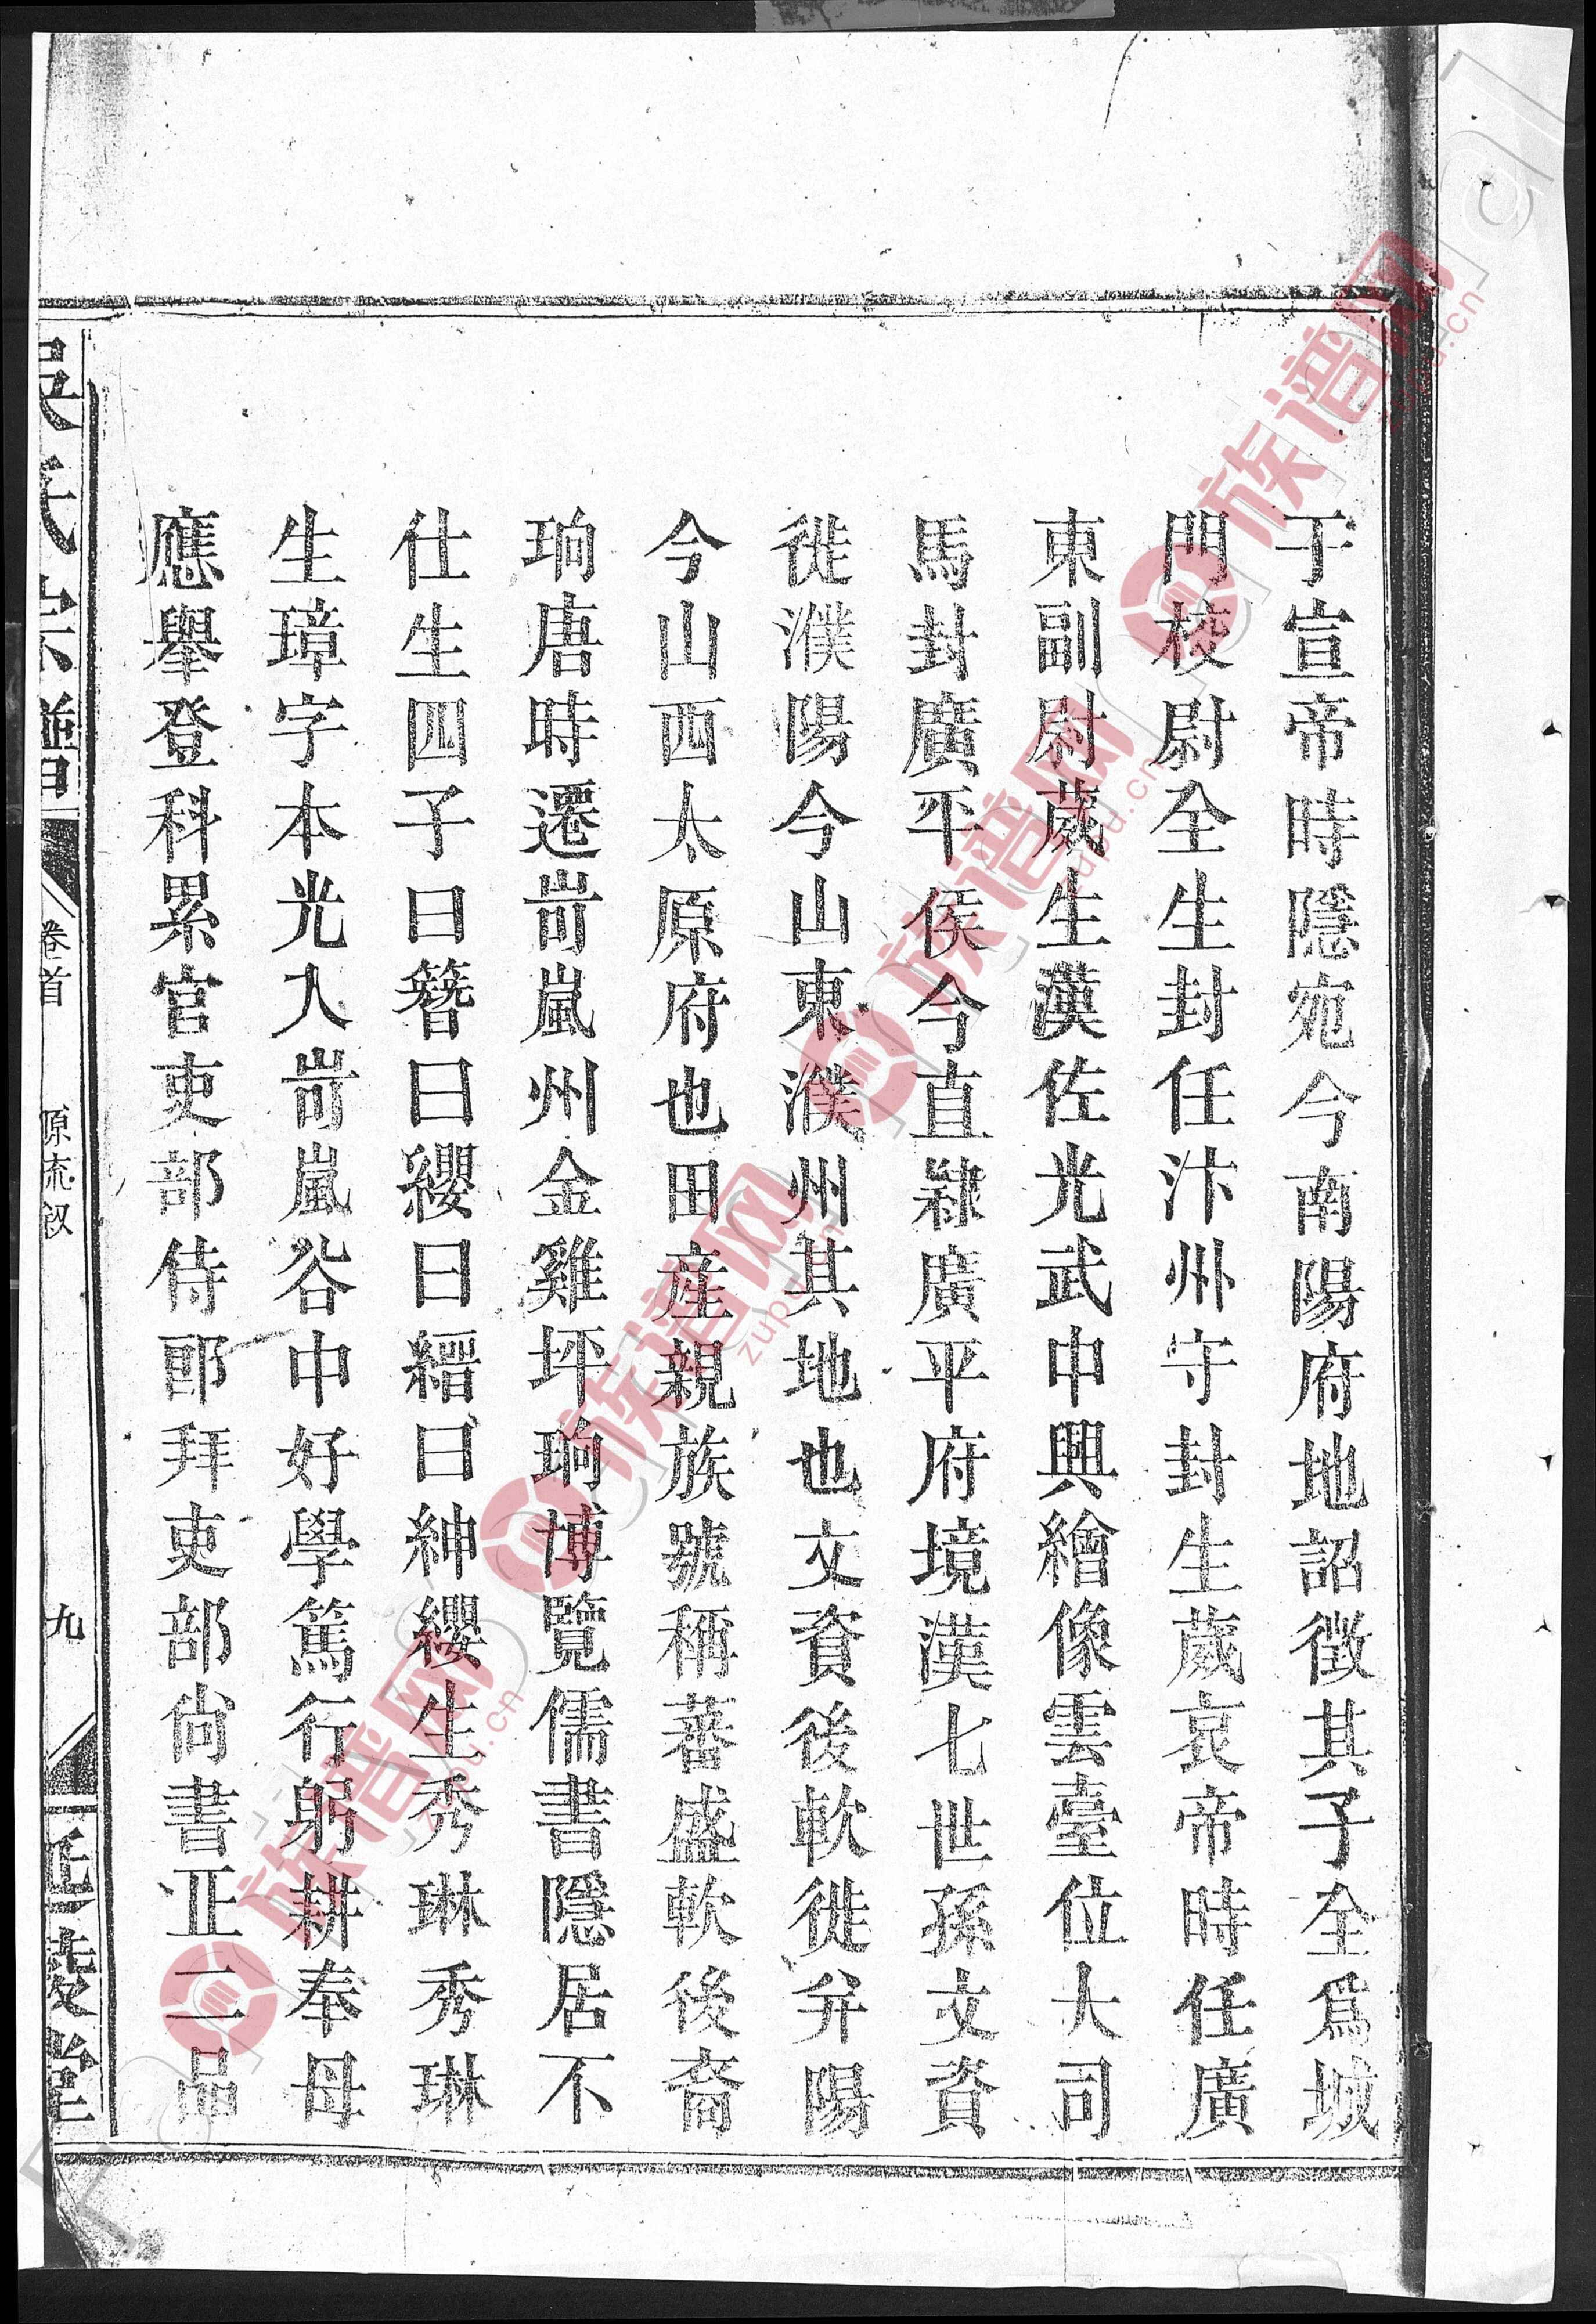 于宣帝時隱宛今南陽府地詔徴其子全爲城
門校尉全生封任汴州守封生葳哀帝時任廣
東副尉葳生漢佐光武中興繪像雲臺位大司
馬封廣平侯今直隸廣平府境漢七世孫文資
徙濮陽今山東濮州其地也文資後軟徙弁陽
今山西太原府也田産親族號稱蕃盛軟後裔
珦唐時遷岢嵐州金雞坪珦博覽儒書隱居不
仕生四子曰簪曰纓曰縉曰紳纓生秀琳秀琳
生璋字本光入岢嵐谷中好學篤行躬耕奉母
應舉登科累官吏部侍郎拜吏部尚書正二品
吳氏宗譜
卷首
原流叙
九
族谱网
zupu.cn
族谱网
zupu.cn
族谱网
zupu.cn
族谱网
zupu.cn